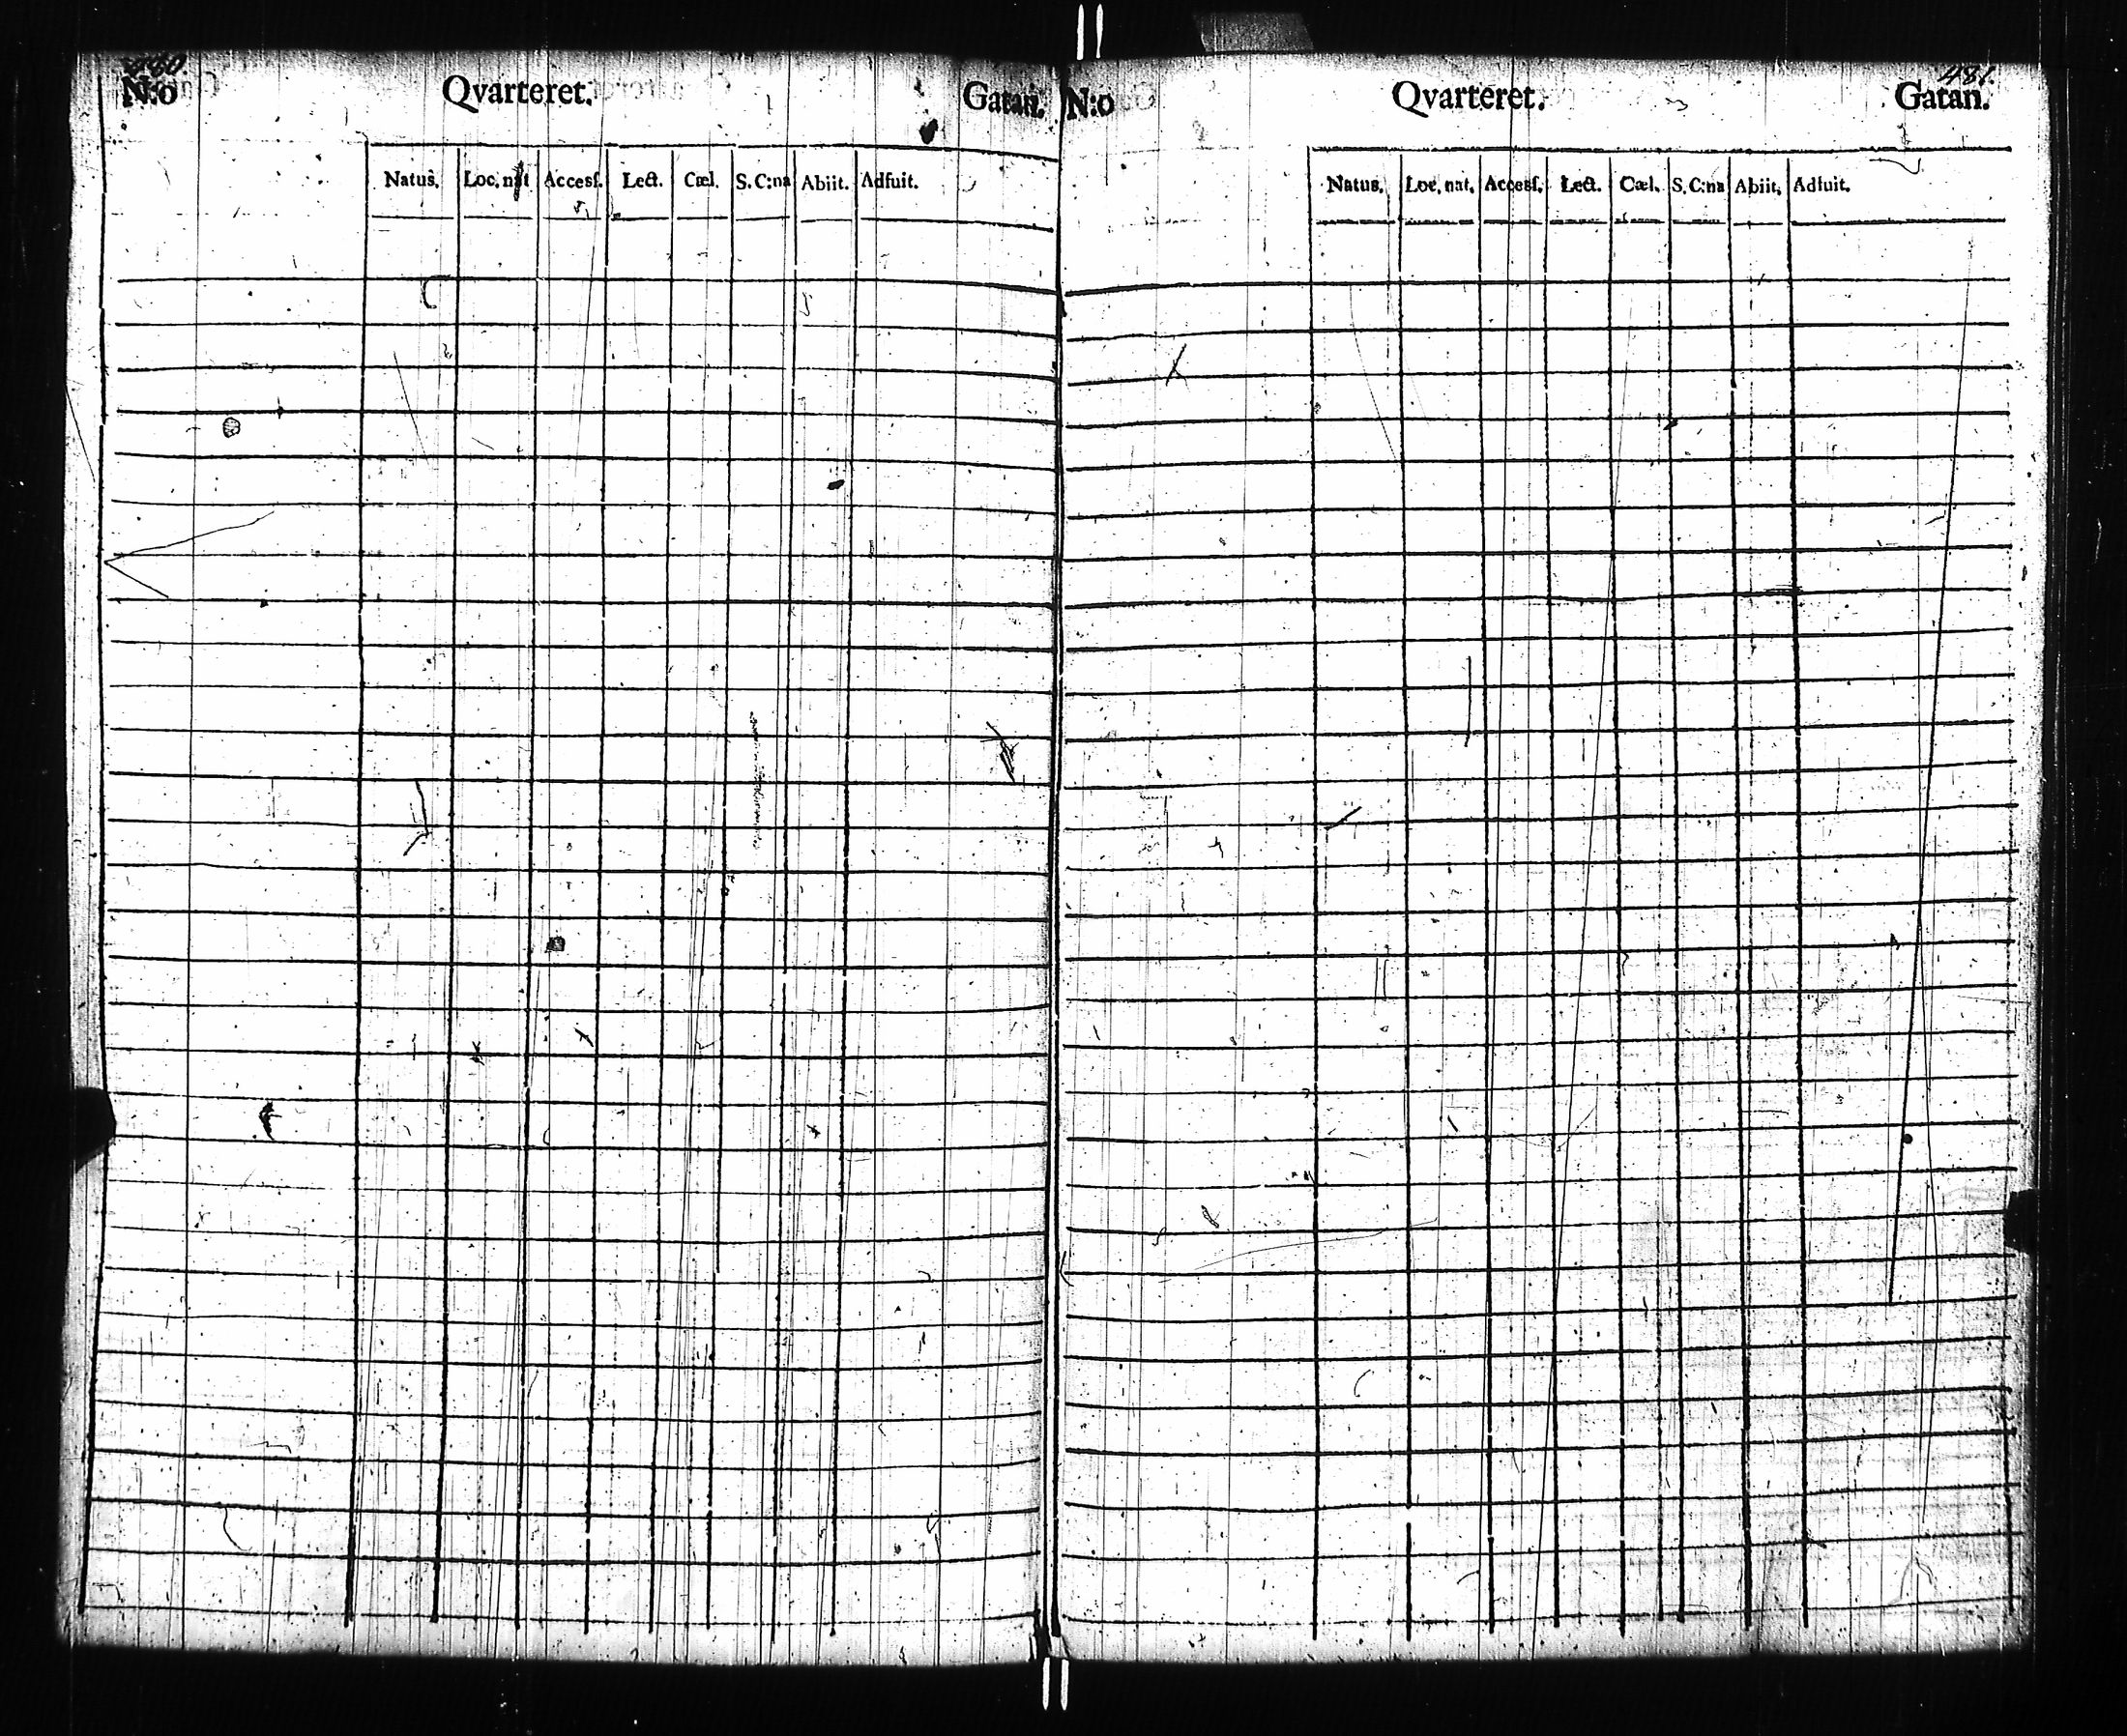 480.
N:o Qvarteret. Gatan.
Natus. Loc. nat Accesſ. Lect. Cæl. S. C:na Abiit. Adfuit.
481.
N:o Qvarteret. Gatan.
Natus. Loc. nat. Accesſ. Lect. Cæl. S. C:na Abiit. Adfuit.